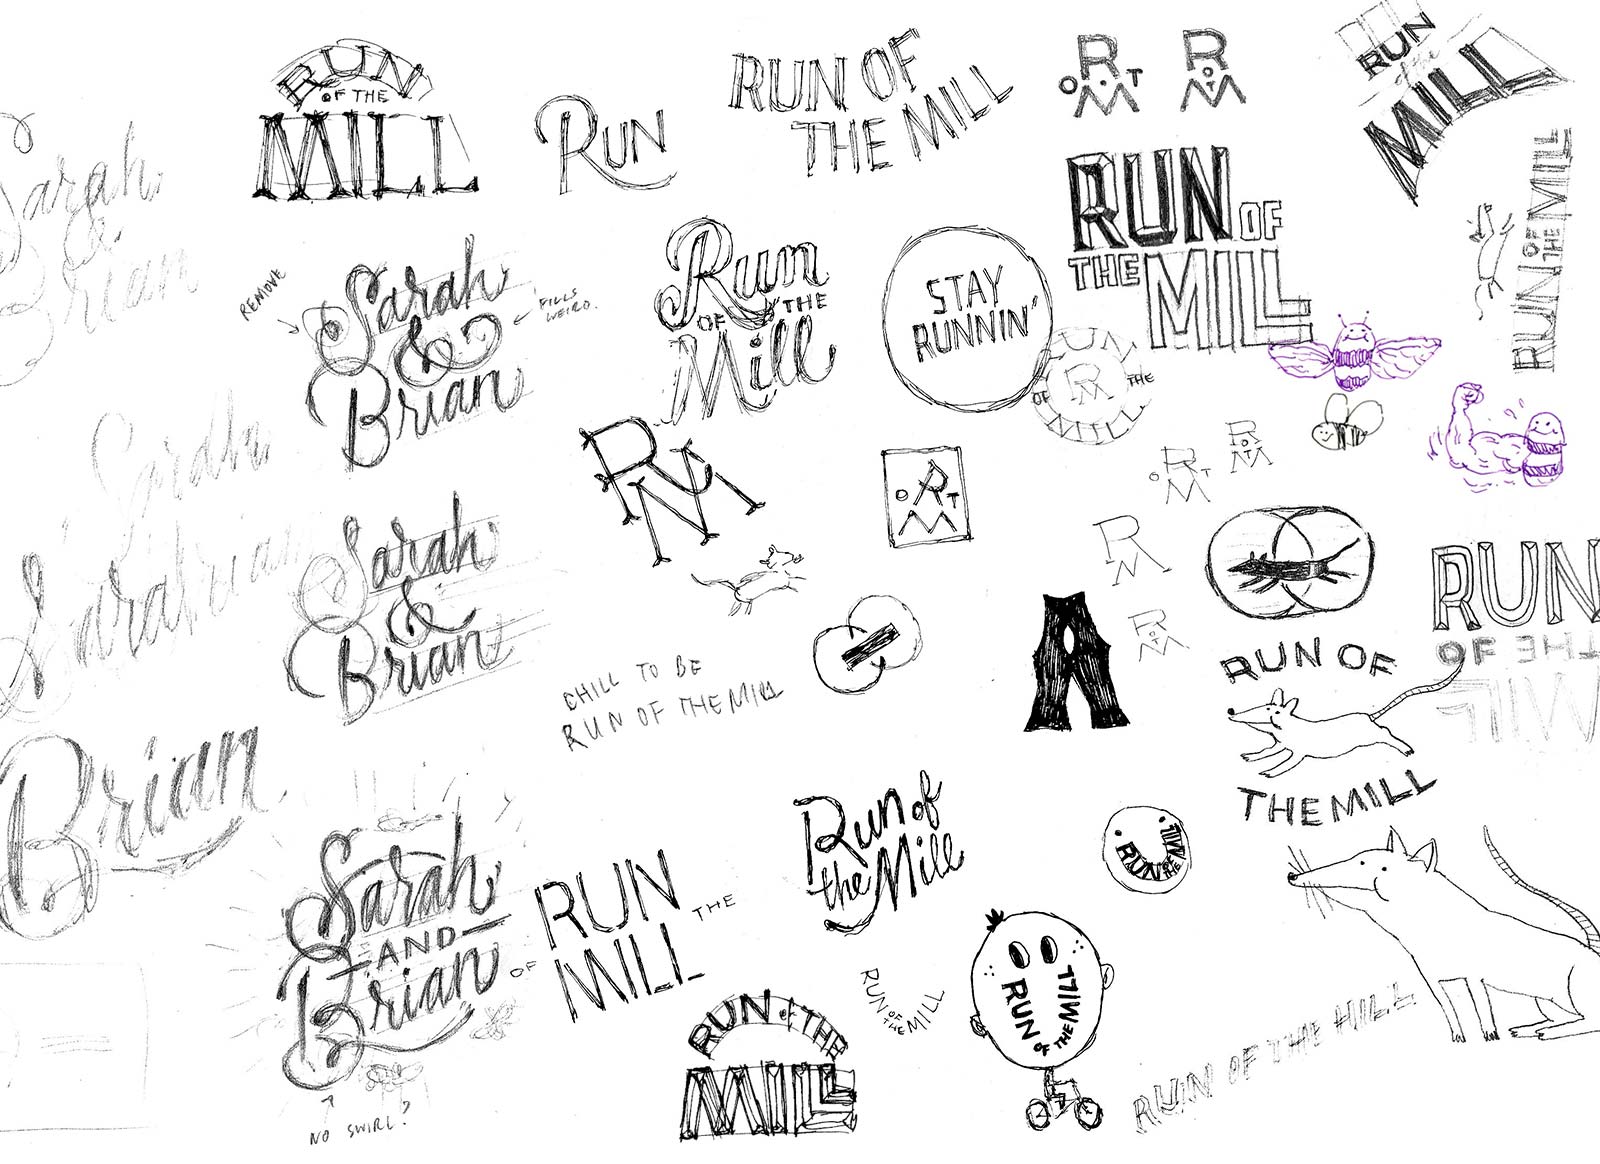 RUN
OF THE
MILL
RUN
RUN OF
THE MILL
R
O · T
M
R
OT
M
RUN
of the
MILL
Sarah
&
Brian
REMOVE
Sarah
&
Brian
FILLS
WEIRD.
Run
OF THE
Mill
STAY
RUNNIN'
RUN OF
THE MILL
RUN
OF THE
MILL
RM
RUN
OF THE
MILL
RNM
R
O T
M
R
O T
M
R
OT
M
R
M
R
OT
M
Sarah
Sarah
Brian
Sarah
&
Brian
CHILL TO BE
RUN OF THE MILL
RUN OF
THE MILL
RUN
OF THE
MILL
Brian
Sarah
AND
Brian
NO SWIRL?
RUN
THE
OF
MILL
Run of
the Mill
RUN OF THE MILL
RUN OF THE MILL
RUN OF THE MILL
RUN of THE
MILL
RUN OF THE MILL